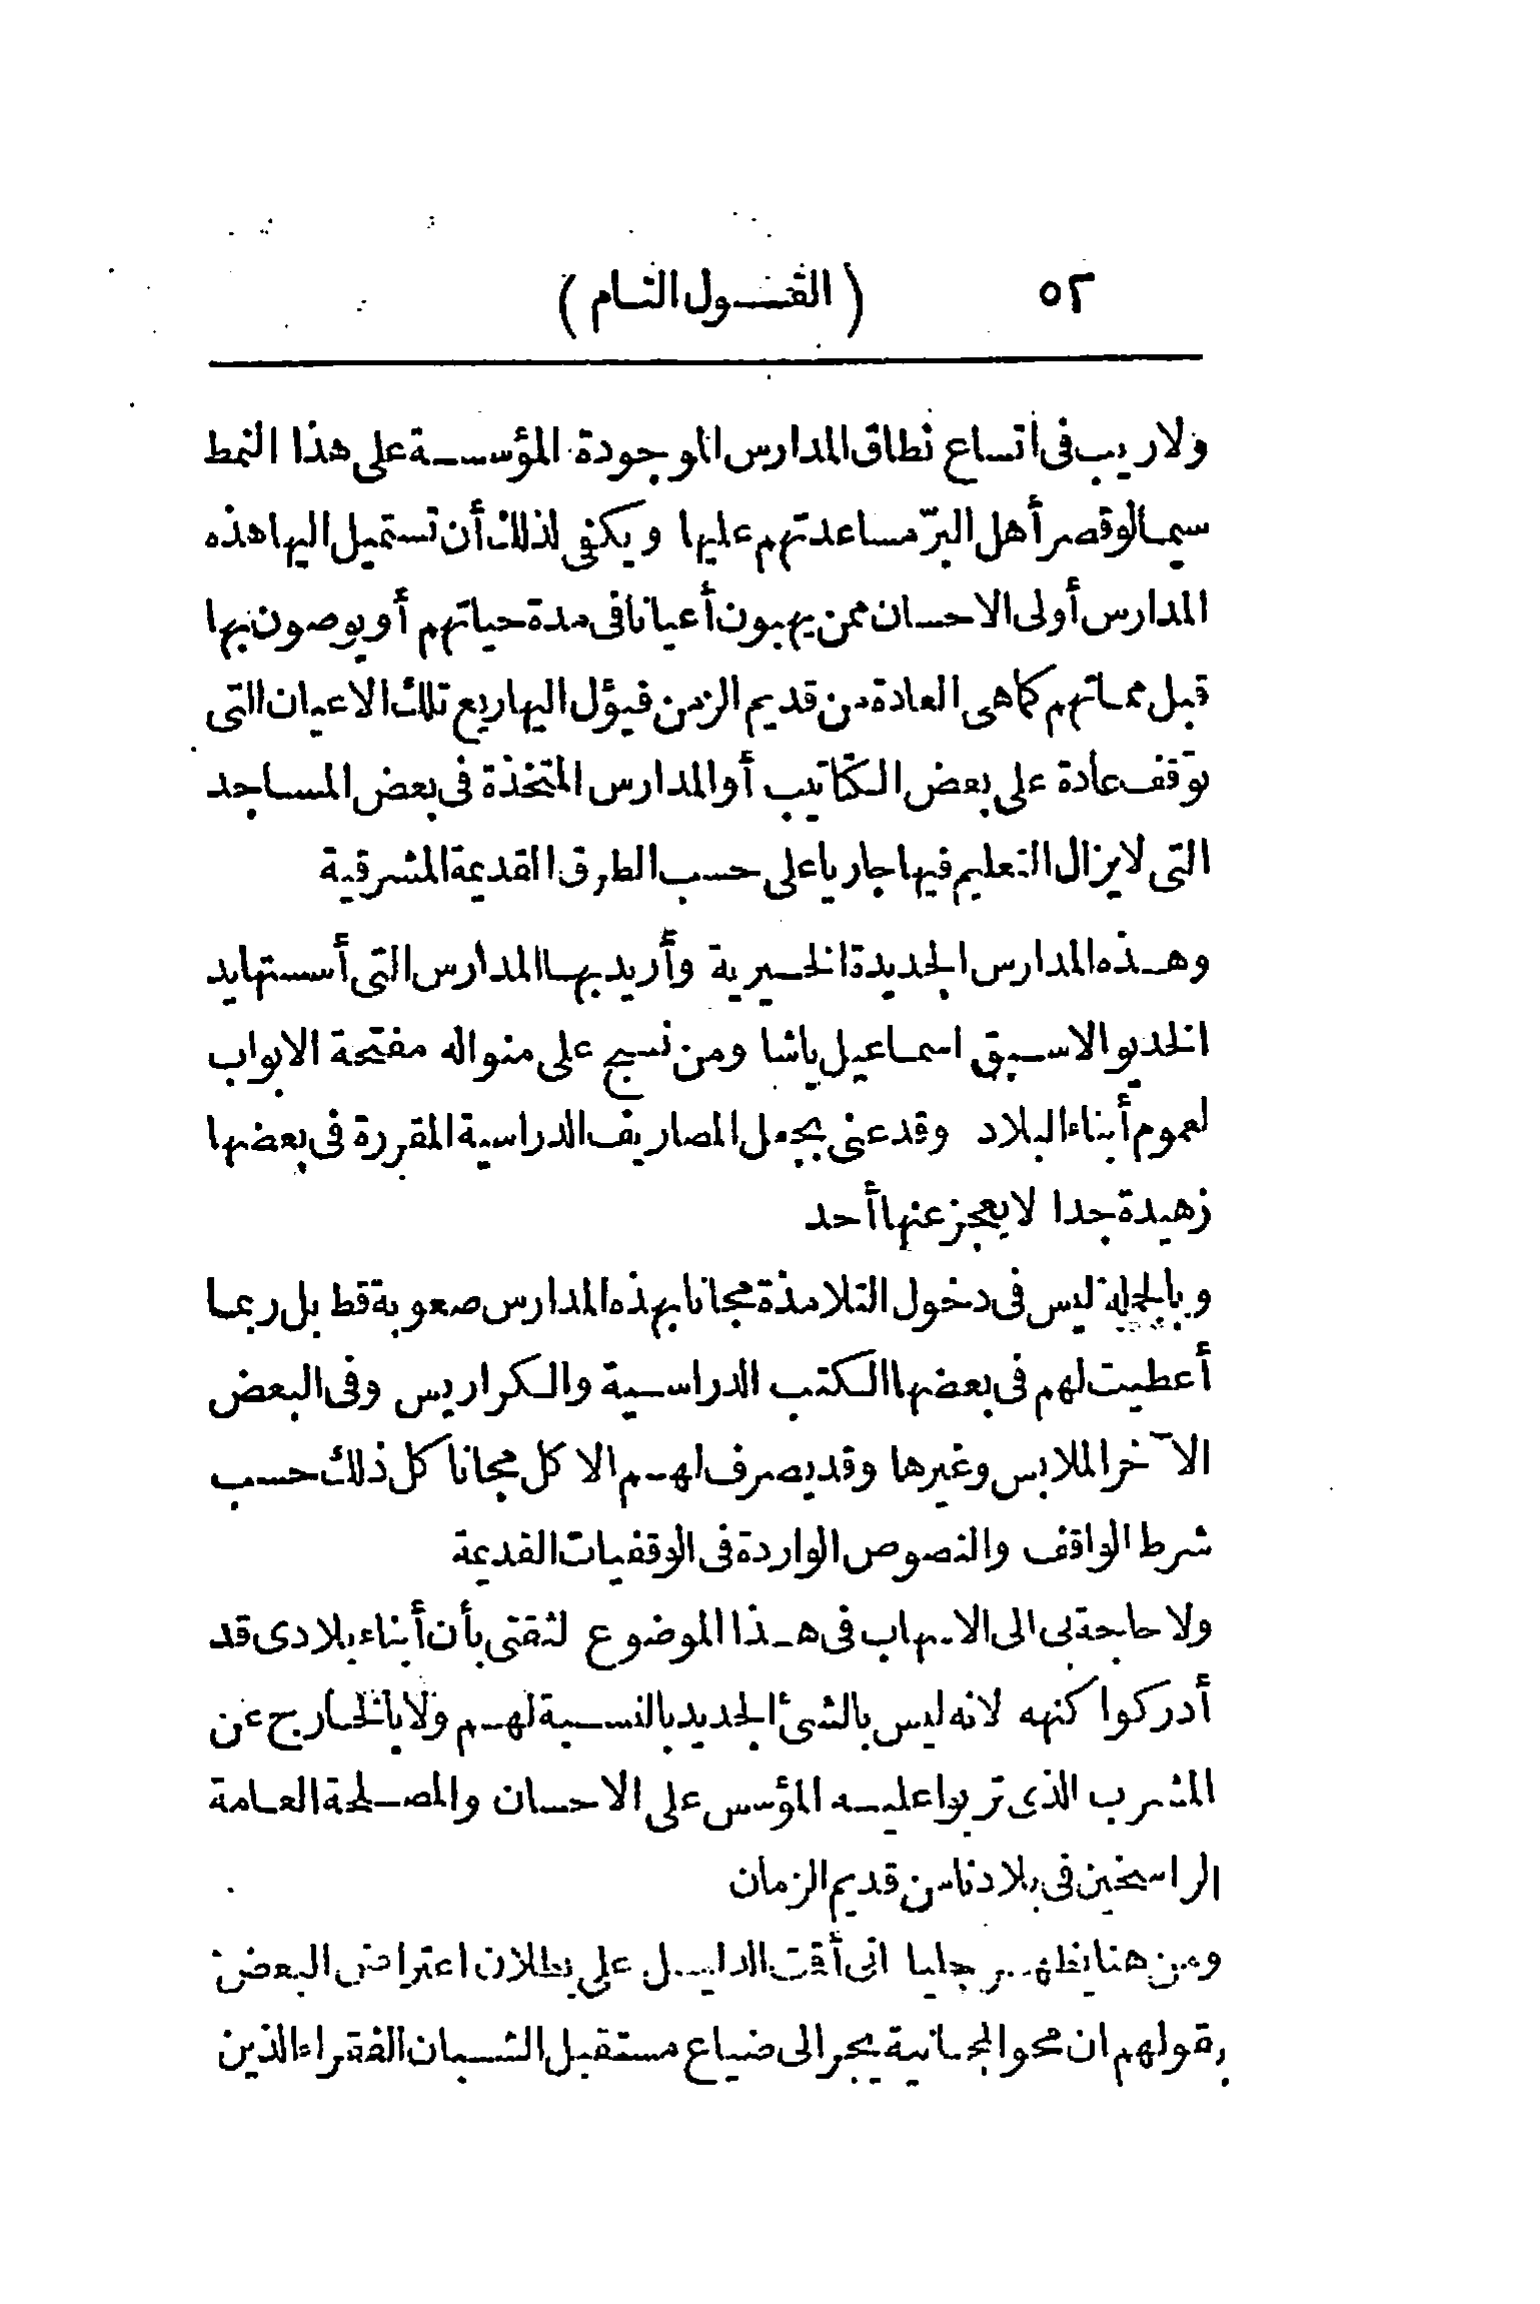 ٥٢ (القول التام)
ولا ريب فى اتساع نطاق المدارس الموجودة المؤسسة على هذا النمط
سيما لو قصر أهل البرّ مساعدتهم عليها ويكفى لذلك أن تستميل اليها هذه
المدارس أولى الاحسان ممن يهبون أعيانا فى مدة حياتهم أو يوصون بها
قبل مماتهم كما هى العادة من قديم الزمن فيؤل اليها ريع تلك الاعيان التى
توقف عادة على بعض الكتاتيب أو المدارس المتخذة فى بعض المساجد
التى لا يزال التعليم فيها جاريا على حسب الطرق القديمة المشرقية
وهذه المدارس الجديدة الخيرية وأريد بها المدارس التى أسستها يد
الخديو الاسبق اسماعيل باشا ومن نسج على منواله مفتحة الابواب
لعموم أبناء البلاد وقد عنى بجعل المصاريف الدراسية المقررة فى بعضها
زهيدة جدا لا يعجز عنها أحد
وبالجملة ليس فى دخول التلامذة مجانا بهذه المدارس صعوبة قط بل ربما
أعطيت لهم فى بعضها الكتب الدراسية والكراريس وفى البعض
الآخر الملابس وغيرها وقد يصرف لهم الاكل مجانا كل ذلك حسب
شرط الواقف والنصوص الواردة فى الوقفيات القديمة
ولا حاجة بى الى الاسهاب فى هذا الموضوع لثقتى بأن أبناء بلادى قد
أدركوا كنهه لانه ليس بالشئ الجديد بالنسبة لهم ولا بالخارج عن
المشرب الذى تربوا عليه المؤسس على الاحسان والمصلحة العامة
الراسخين فى بلادنا من قديم الزمان
ومن هنا يظهر جليا انى أقمت الدليل على بطلان اعتراض البعض
بقولهم ان محو المجانية يجر الى ضياع مستقبل الشبان الفقراء الذين